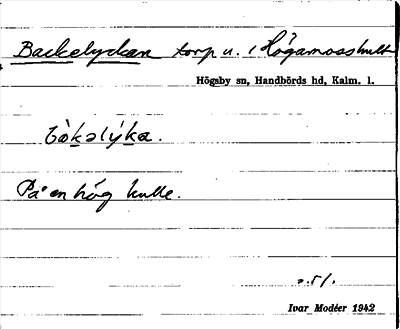 Backelyckan torp u. i Högamosshult
Högsby sn, Handbörds hd, Kalm. l.
På en hög kulle.
Ivar Modéer 1942